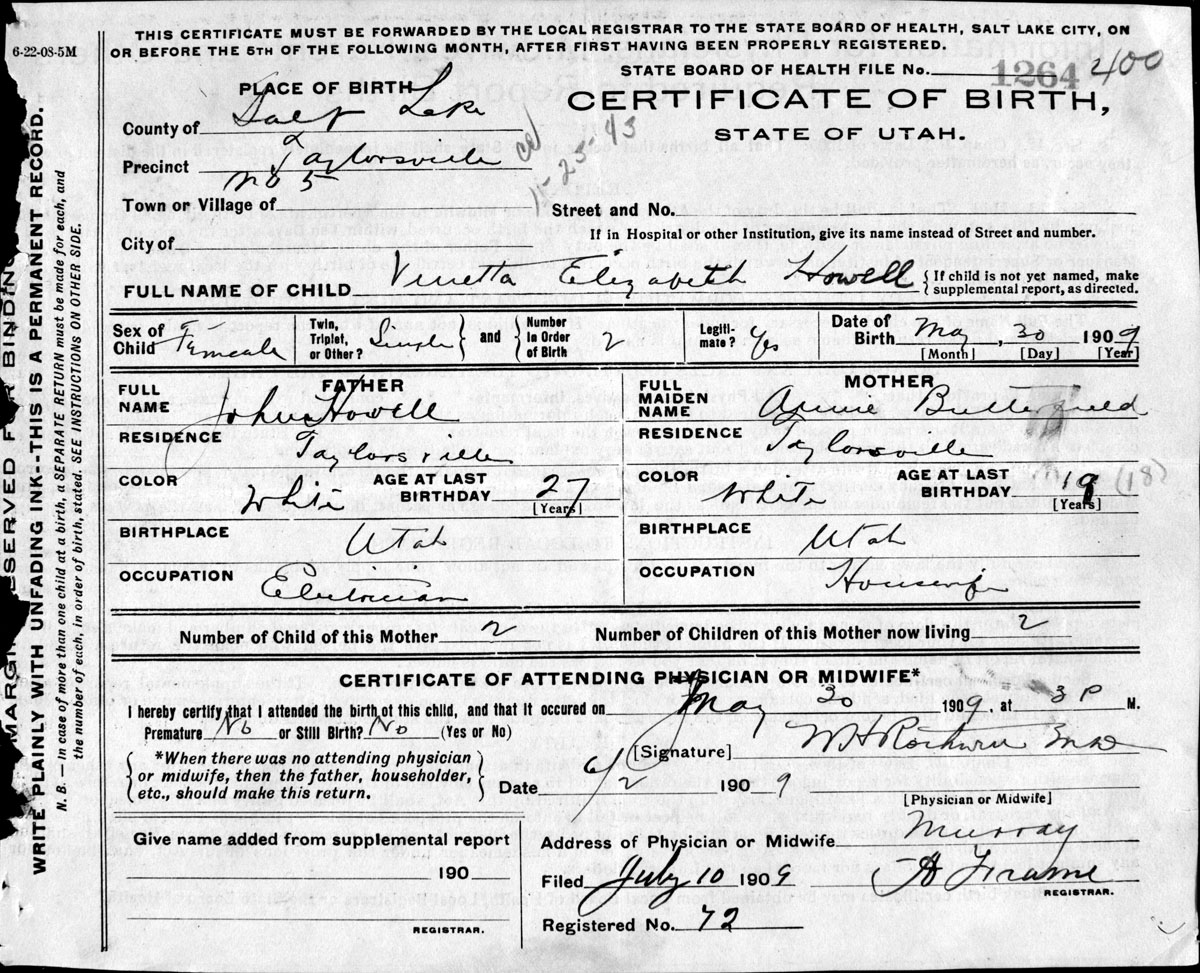 6-22-08-5M
THIS CERTIFICATE MUST BE FORWARDED BY THE LOCAL REGISTRAR TO THE STATE BOARD OF HEALTH, SALT LAKE CITY, ON
OR BEFORE THE 5TH OF THE FOLLOWING MONTH, AFTER FIRST HAVING BEEN PROPERLY REGISTERED.
STATE BOARD OF HEALTH FILE No. 1264 400
PLACE OF BIRTH
CERTIFICATE OF BIRTH,
STATE OF UTAH.
County of Salt Lake
Precinct Taylorsville
No 5
Town or Village of
Street and No.
City of
If in Hospital or other Institution, give its name instead of Street and number.
FULL NAME OF CHILD Vinetta Elizabeth Howell {If child is not yet named, make
supplemental report, as directed.
Sex of Child Female
Twin, Triplet, or Other? Single } and { Number In Order of Birth 2
Legiti-mate? Yes
Date of Birth May 30 1909
[Month] [Day] [Year]
FATHER
FULL NAME John Howell
RESIDENCE Taylorsville
COLOR White
AGE AT LAST BIRTHDAY 27 [Years]
BIRTHPLACE Utah
OCCUPATION
MOTHER
FULL MAIDEN NAME Annie Butterfield
RESIDENCE Taylorsville
COLOR White
AGE AT LAST BIRTHDAY 19 [Years] (18)
BIRTHPLACE Utah
OCCUPATION Housewife
Number of Child of this Mother 2
Number of Children of this Mother now living 2
CERTIFICATE OF ATTENDING PHYSICIAN OR MIDWIFE*
I hereby certify that I attended the birth of this child, and that it occured on May 30 1909, at 3 P M.
Premature No or Still Birth? No (Yes or No)
{*When there was no attending physician
or midwife, then the father, householder,
etc., should make this return.}
[Signature] W H
Date 6/2 1909
[Physician or Midwife]
Give name added from supplemental report
190
REGISTRAR.
Address of Physician or Midwife Murray
Filed July 10 1909 A Frame
REGISTRAR.
Registered No. 72
MARGIN RESERVED FOR BINDING
WRITE PLAINLY WITH UNFADING INK--THIS IS A PERMANENT RECORD.
N. B. — In case of more than one child at a birth, a SEPARATE RETURN must be made for each, and
the number of each, in order of birth, stated. SEE INSTRUCTIONS ON OTHER SIDE.